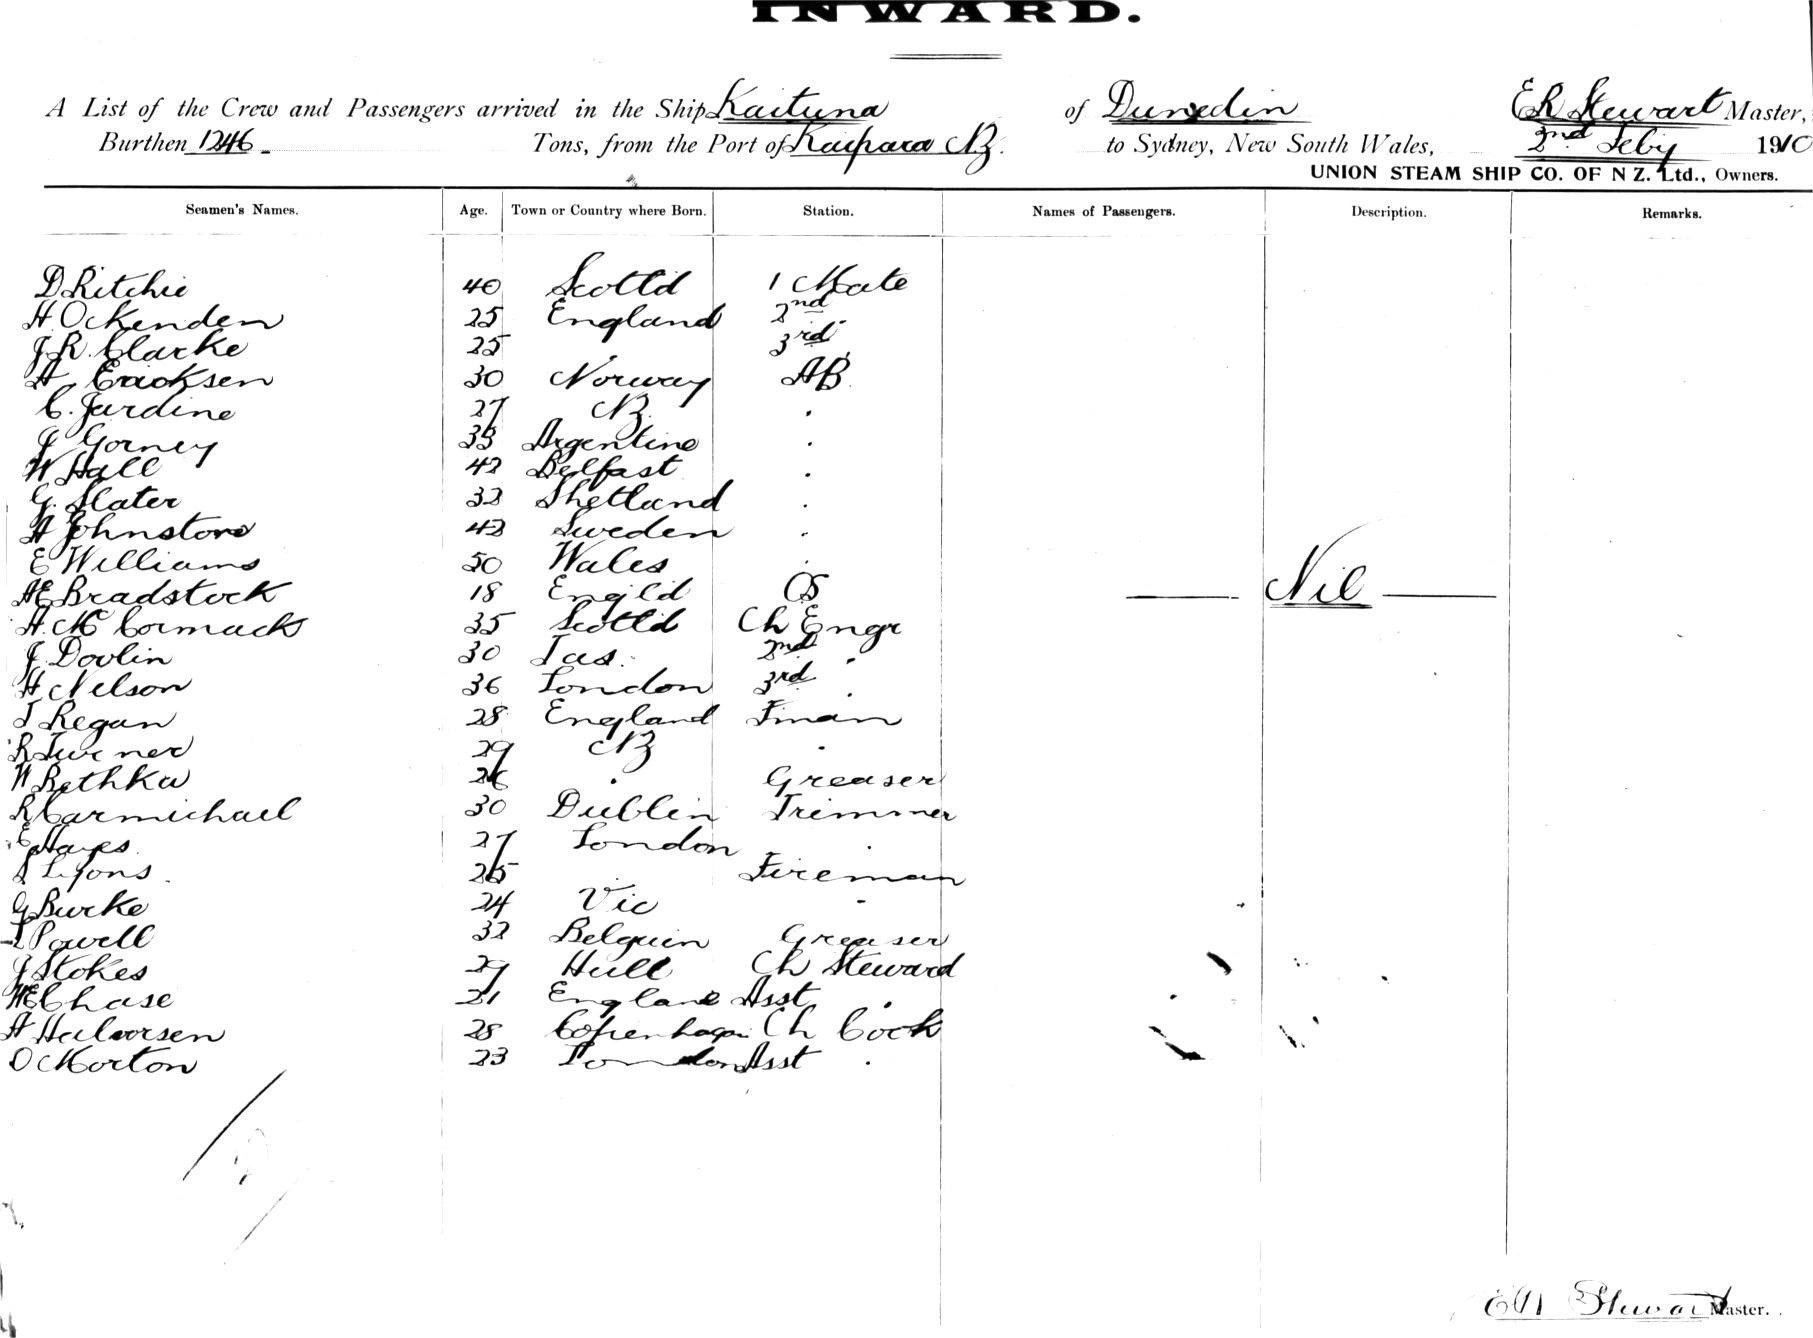 INWARD.
A List of the Crew and Passengers arrived in the Ship Kaituna of Dunedin E R Stewart Master,
Burthen 1246 Tons, from the Port of Kaipara NZ. to Sydney, New South Wales, 2nd Feby 1910
UNION STEAM SHIP CO. OF N Z. Ltd., Owners.
Seamen's Names. Age. Town or Country where Born. Station. Names of Passengers. Description. Remarks.
D Ritchie 40 Scotld 1 Mate
H Ockenden 25 England 2nd "
J R. Clarke 25 " 3rd "
A Ericksen 30 Norway AB
C. Jardine 27 NZ "
J Gorney 33 Argentine "
W Hall 42 Belfast "
G. Slater 32 Shetland "
A Johnstone 42 Sweden "
E Williams 50 Wales "
AE Bradstock 18 Engld OS Nil
A. Mc Cormack 35 Scotld Ch Engr
J. Dovlin 30 Tas. 2nd "
H Nelson 36 London 3rd "
J Regan 28 England Fman
R Turner 29 NZ "
W Rethka 26 " Greaser
R Carmichael 30 Dublin Trimmer
E Hayes 27 London "
Lyons 25 " Fireman
G Burke 24 Vic "
Powell 32 Belguim Greaser
J Stokes 29 Hull Ch Steward
WE Chase 21 England Asst "
A Halvorsen 28 Copenhagen Ch Cook
O Morton 23 London Asst "
Stewart Master.